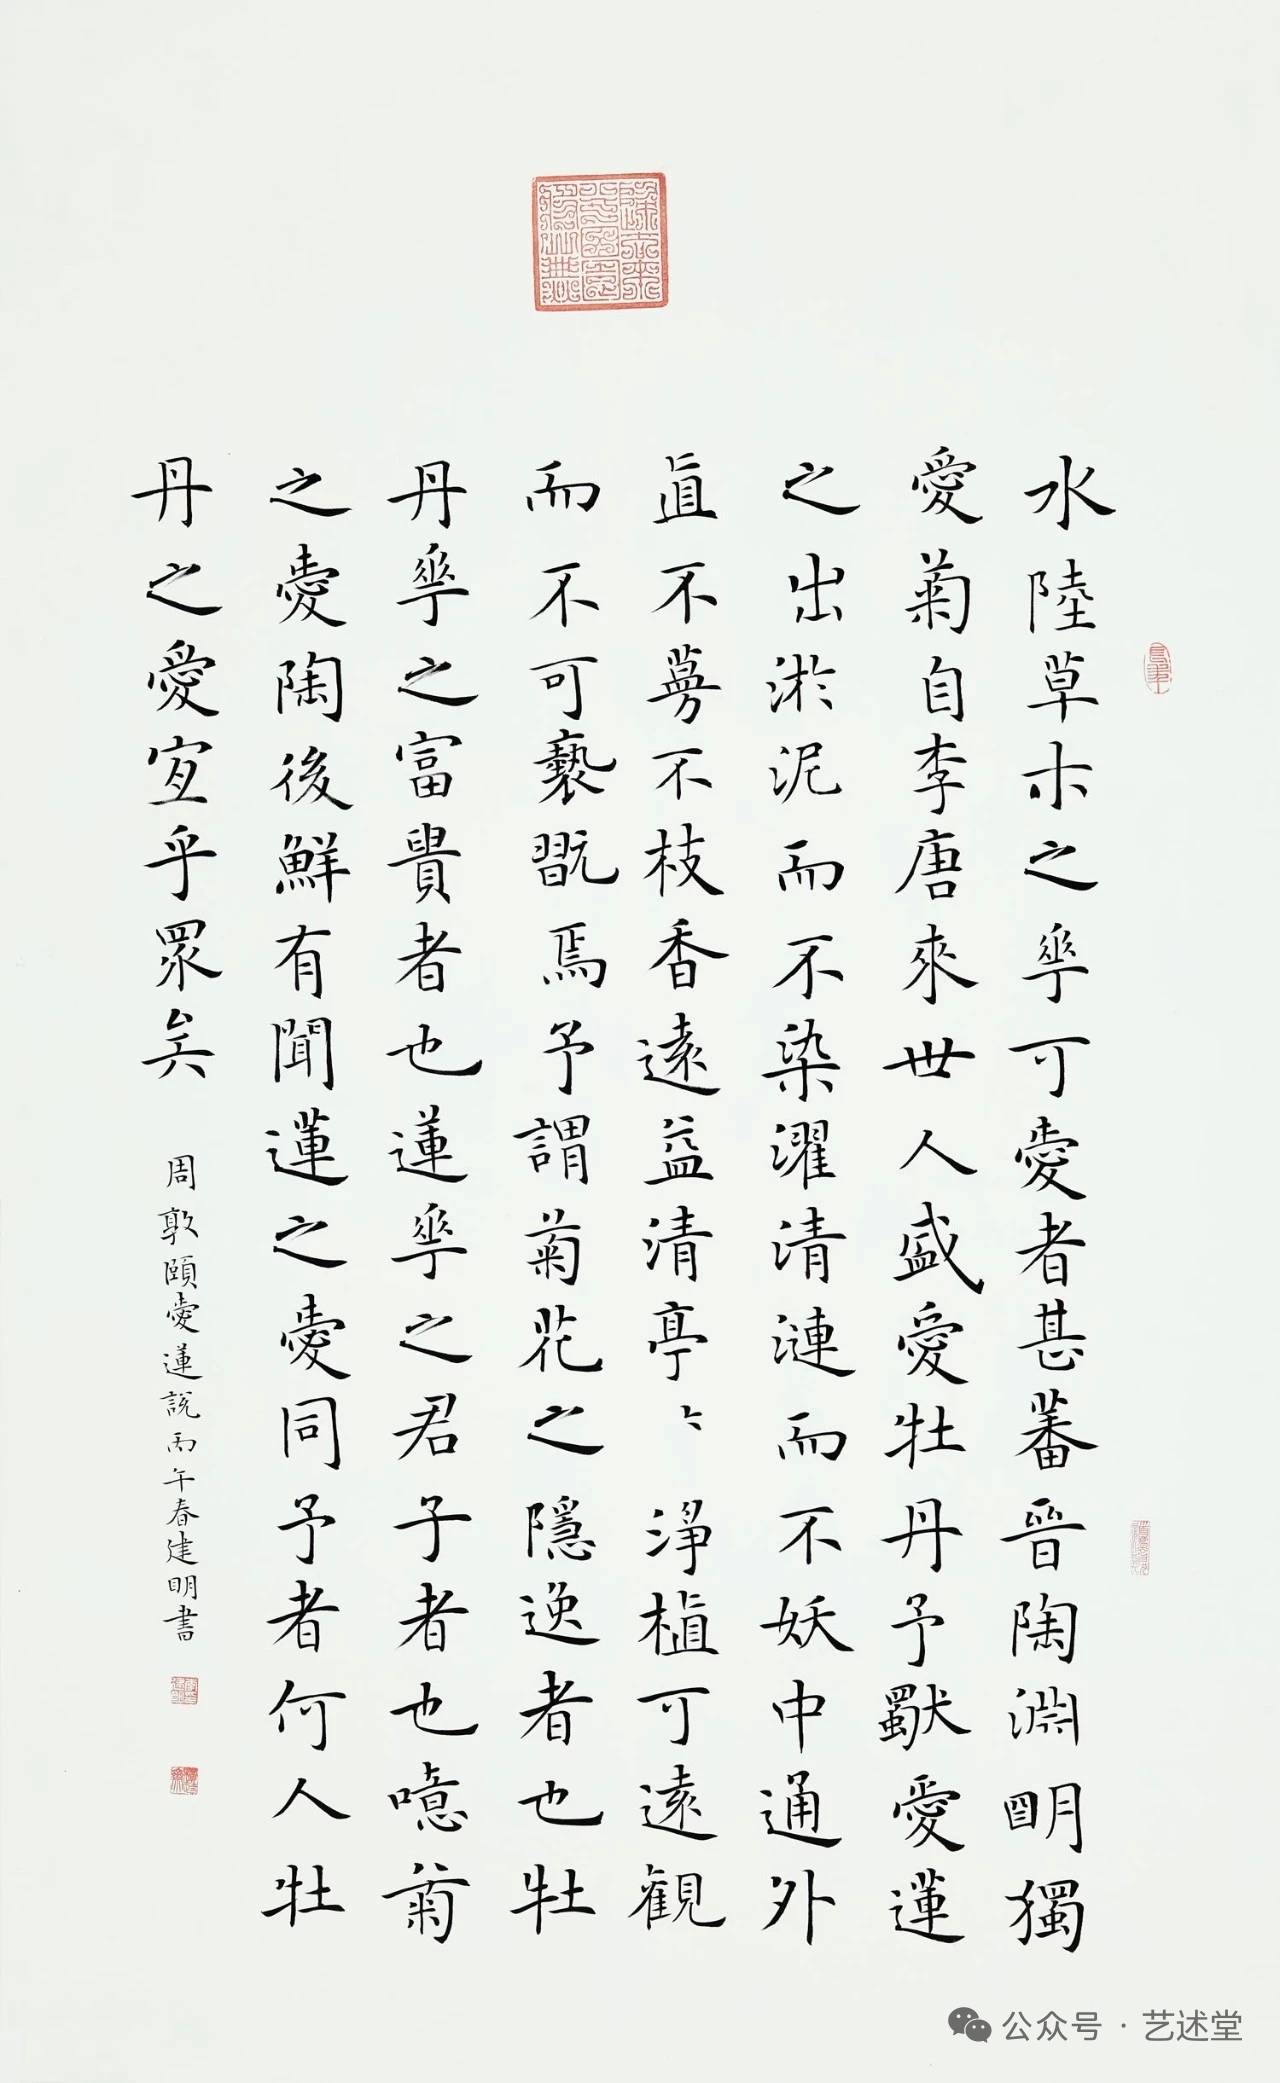 水陸草木之華可愛者甚蕃晉陶淵明獨
愛菊自李唐來世人盛愛牡丹予獨愛蓮
之出淤泥而不染濯清漣而不妖中通外
直不蔓不枝香遠益清亭〻淨植可遠觀
而不可褻翫焉予謂菊花之隱逸者也牡
丹華之富貴者也蓮華之君子者也噫菊
之愛陶後鮮有聞蓮之愛同予者何人牡
丹之愛宜乎眾矣
周敦頤愛蓮說丙午春建明書
公众号 · 艺述堂